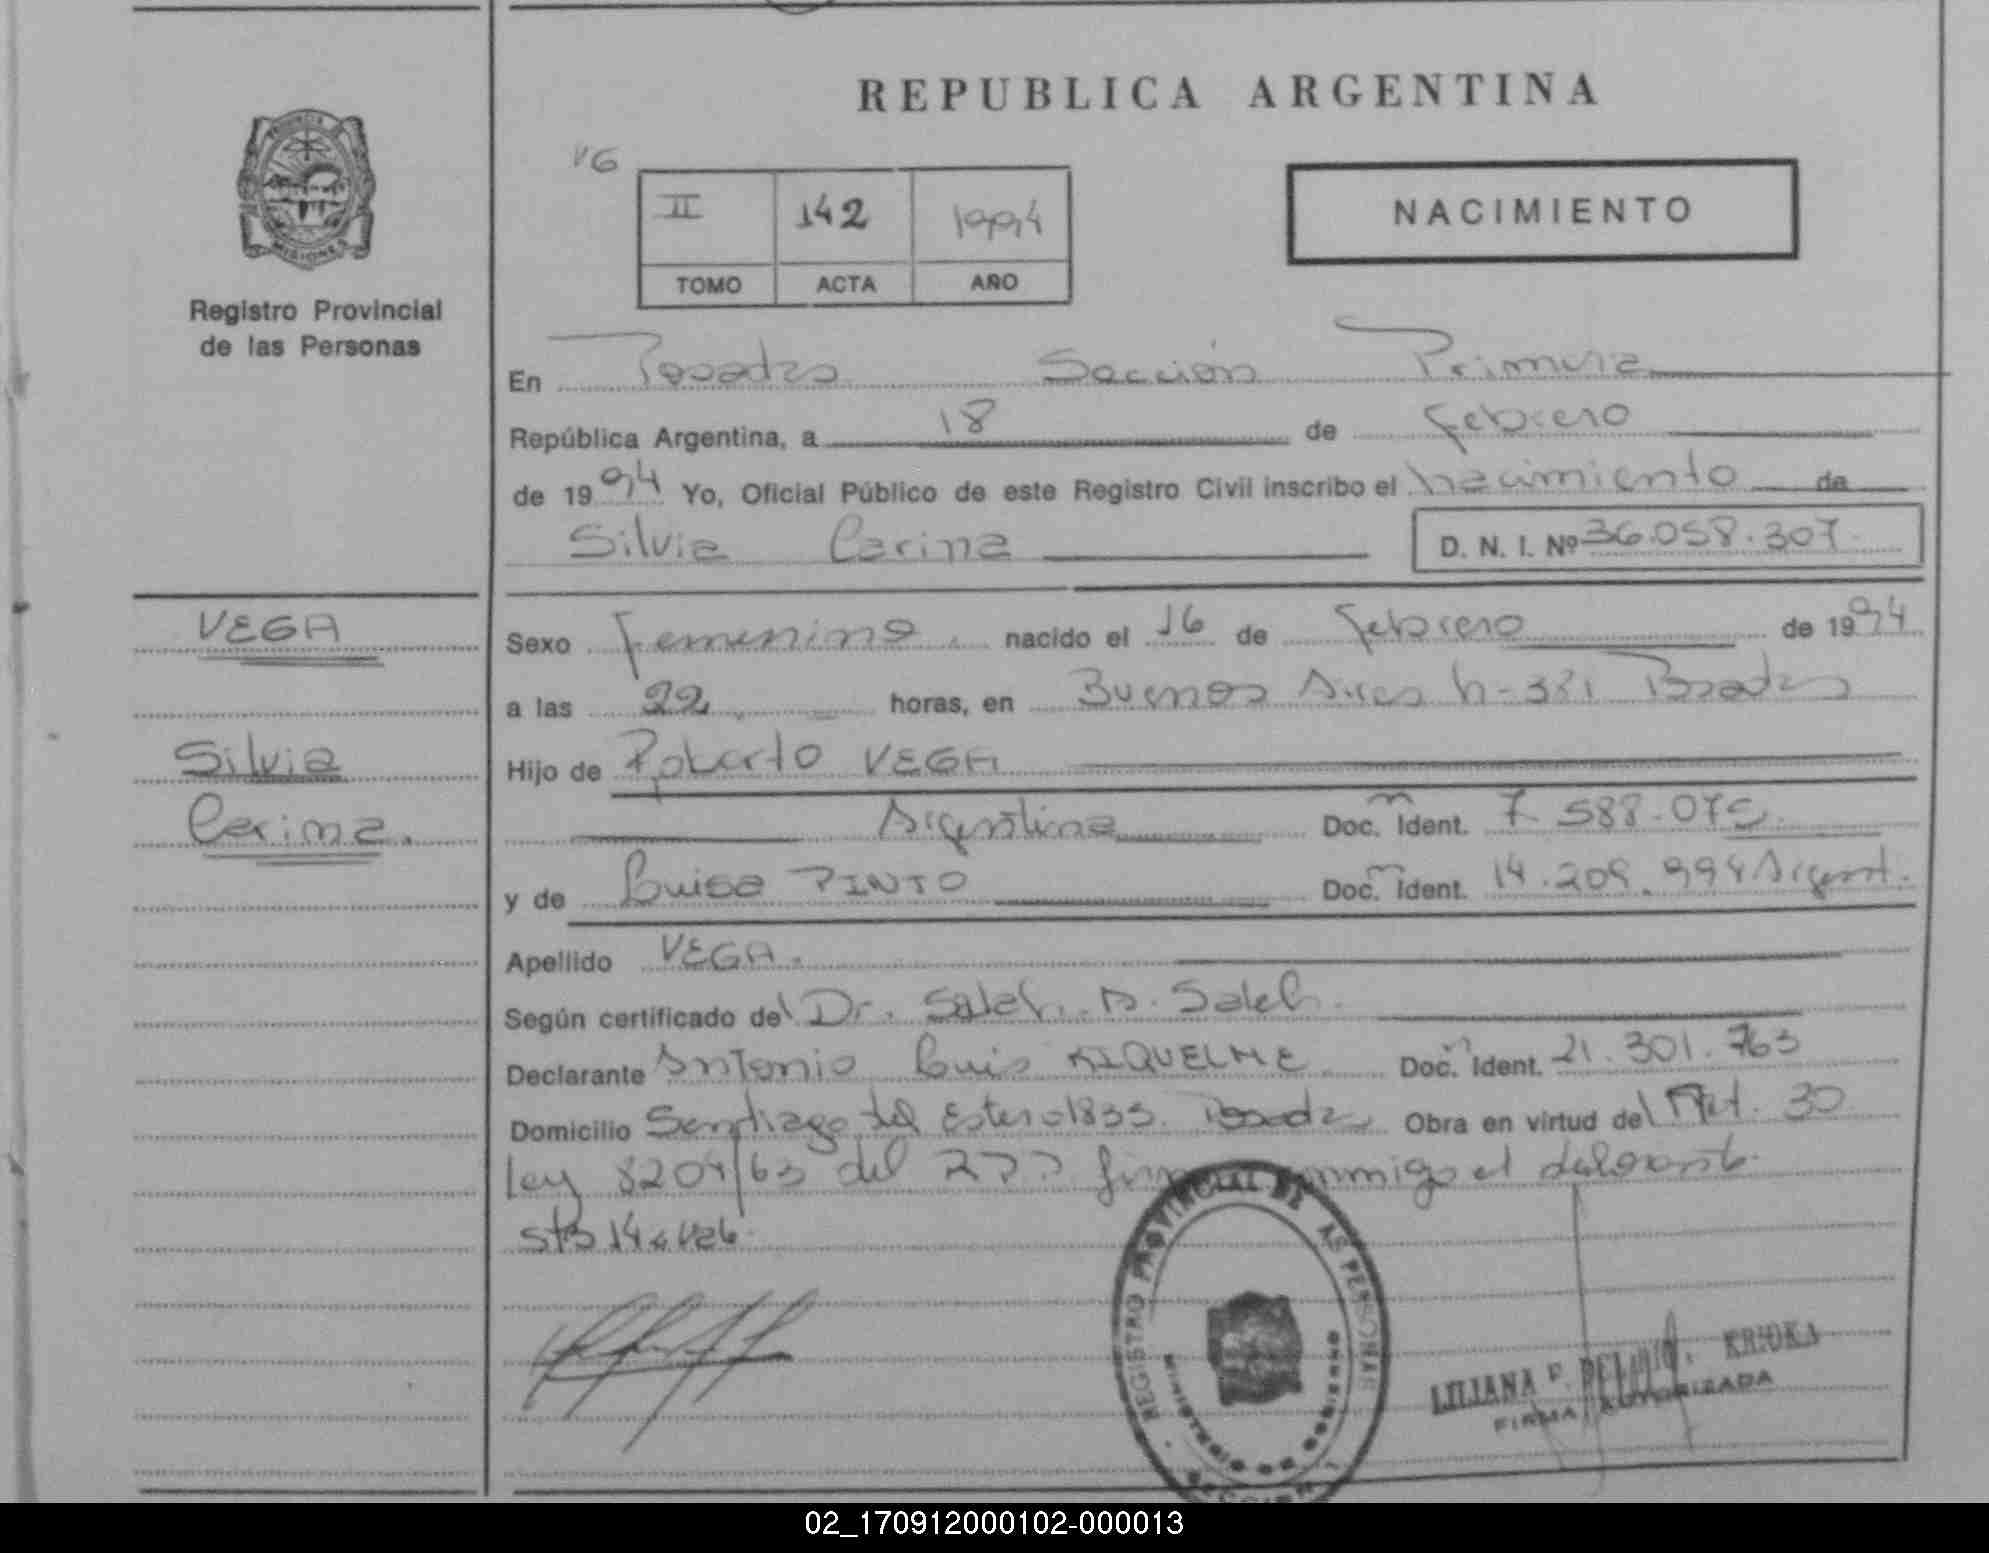 REPUBLICA ARGENTINA
PROVINCIA DE
MISIONES
Registro Provincial
de las Personas
VG
II 142 1994
TOMO ACTA AÑO
NACIMIENTO
En Posadas Sección Primera
República Argentina, a 18 de Febrero
de 1994 Yo, Oficial Público de este Registro Civil inscribo el nacimiento de
Silvia Carina D. N. I. Nº 36.058.307.
VEGA
Silvia
Carina.
Sexo Femenino. nacido el 16 de Febrero de 1994
a las 22 horas, en Buenos Aires Posadas
Hijo de Roberto VEGA
Argentina Doc. Ident. 7.588.075.
y de Luisa PINTO Doc. Ident. 14.209.994 Argent.
Apellido VEGA.
Según certificado del Dr. Saleh. A. Saleh.
Declarante Antonio Luis RIQUELME Doc. Ident. 21.301.763
Domicilio Santiago del Estero 1835. Posadas Obra en virtud del Art. 30
ley 8204/63 del conmigo el
REGISTRO PROVINCIAL DE LAS PERSONAS
MINISTERIO DE GOBIERNO
SECCION 1
LILIANA F.
FIRMA AUTORIZADA
02_170912000102-000013